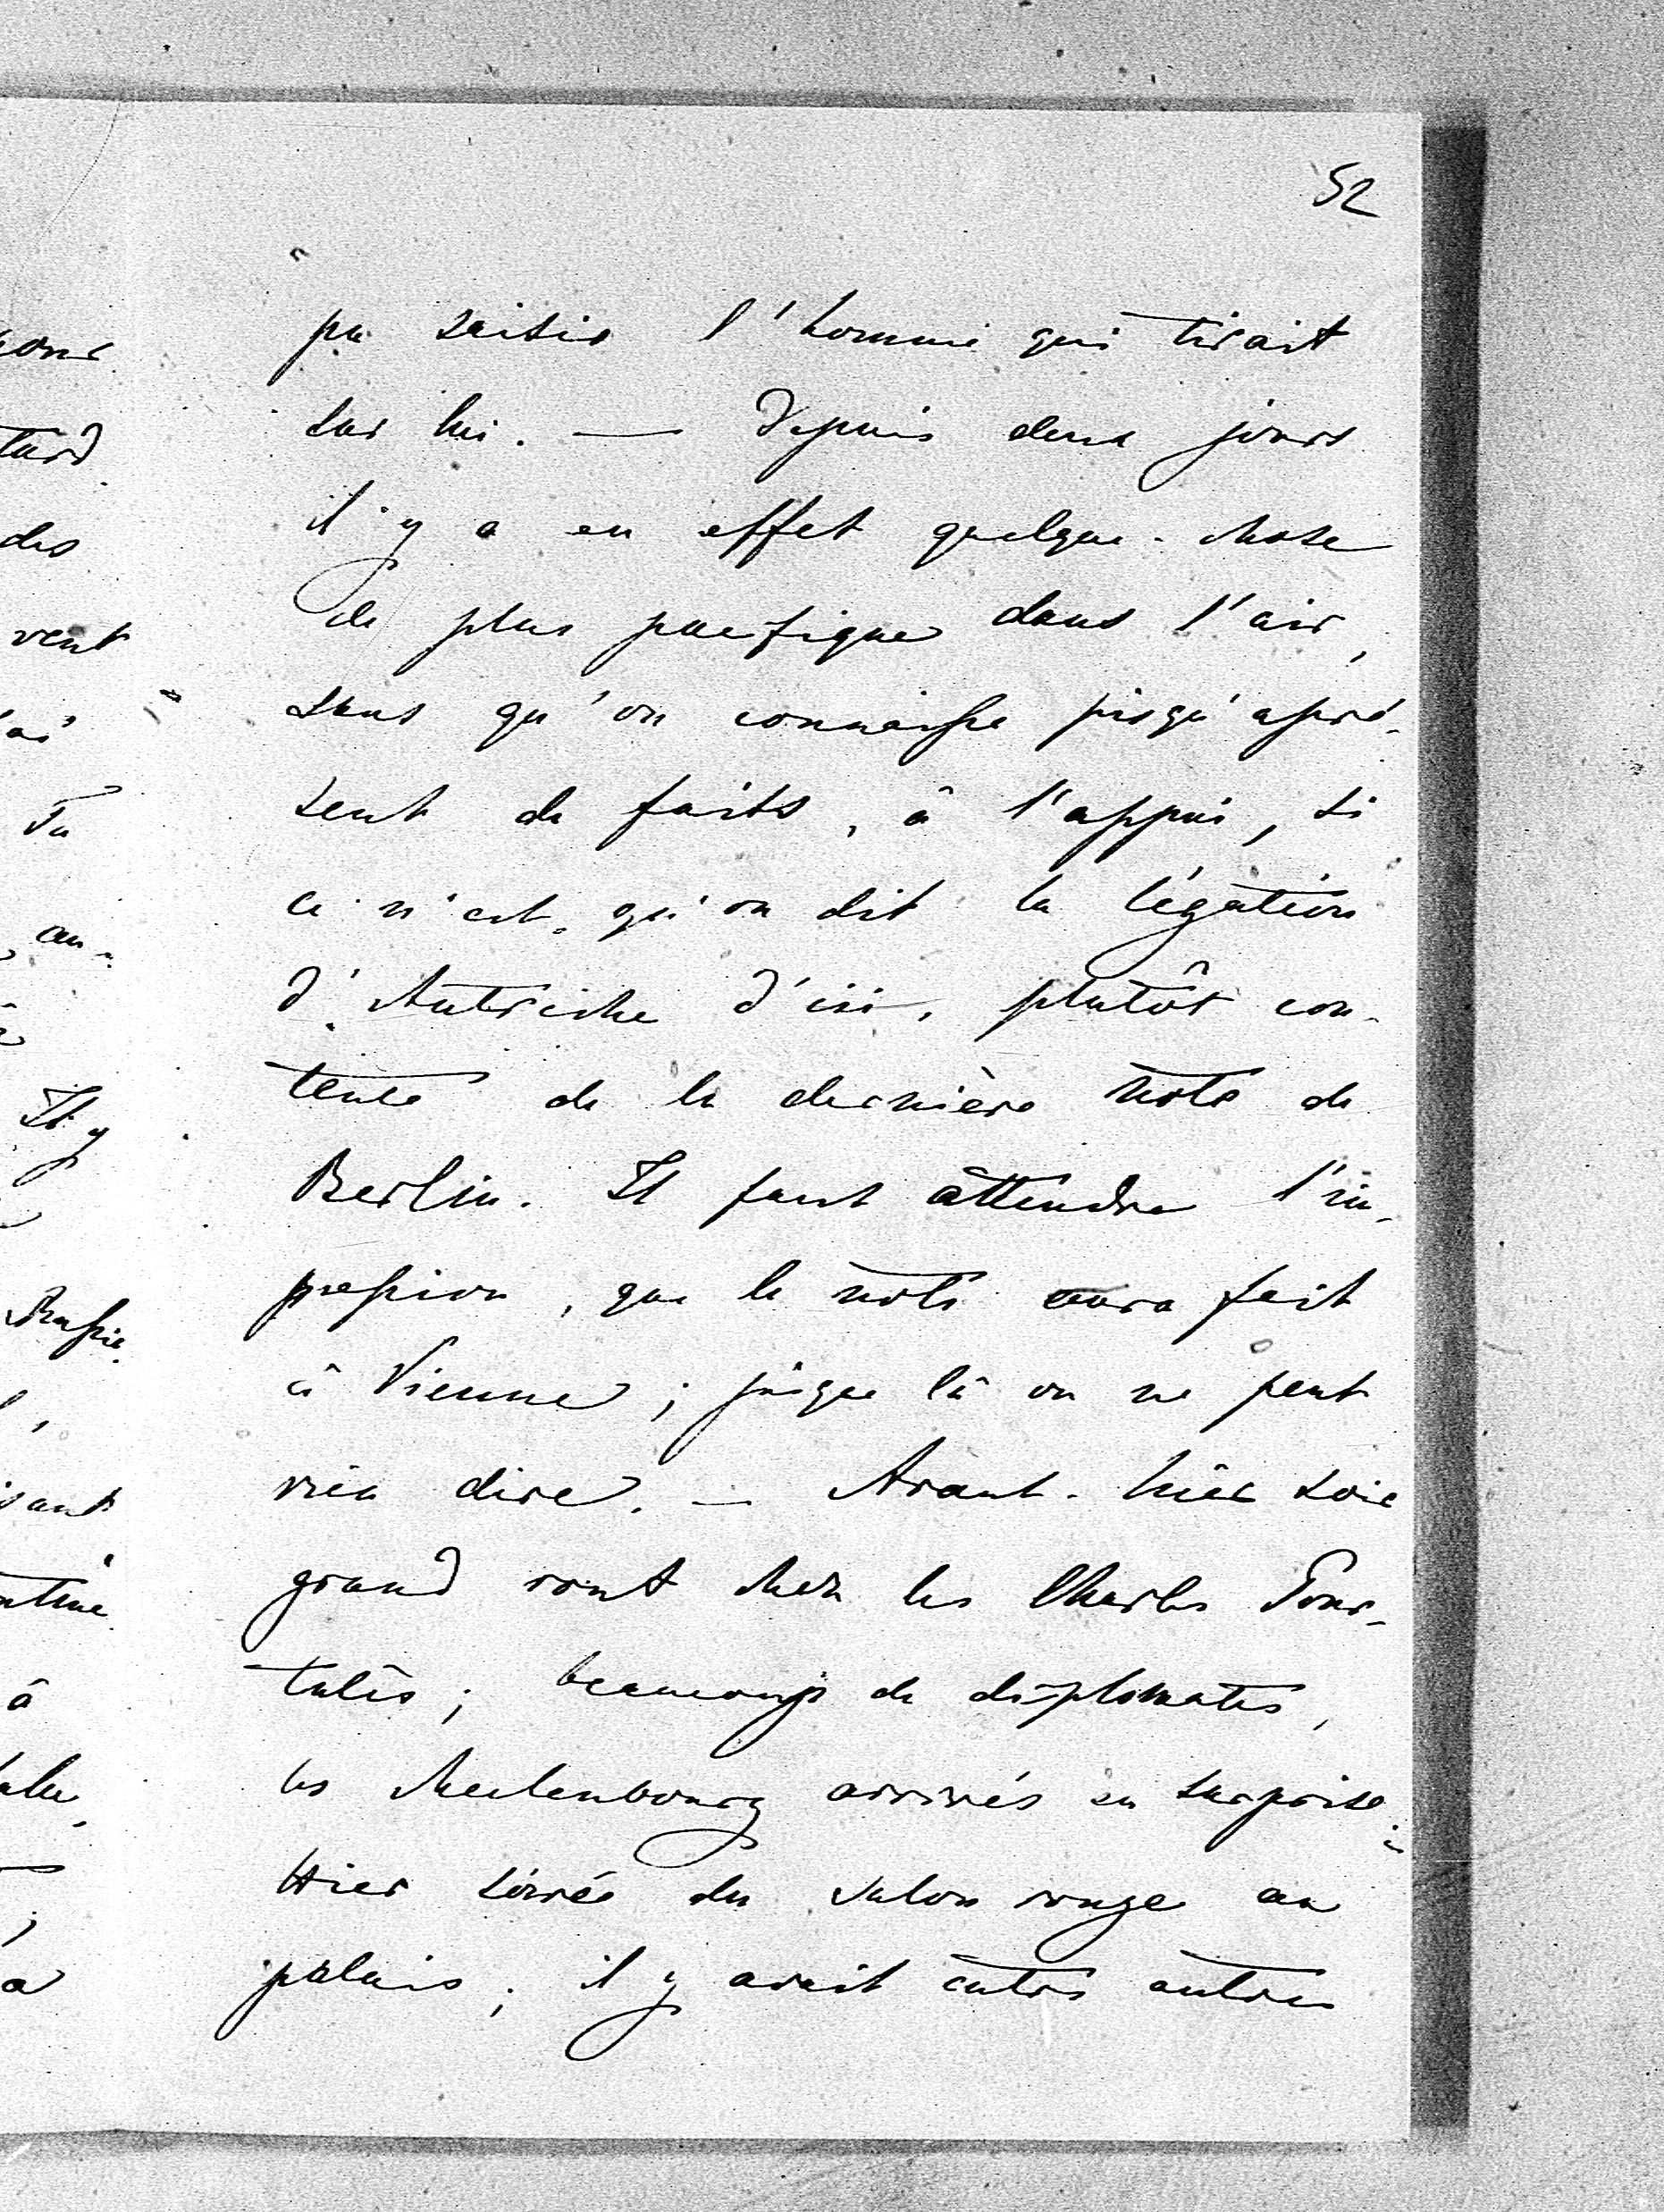 52
pu saisir l'homme qui tirait
sur lui. — Depuis deux jours
il y a en effet quelque-chose
de plus pacifique dans l'air,
sans qu'on connaisse jusqu'apré-
sent de faits, à l'appui, si
ce n'est, qu'on dit la légation
d'Autriche d'ici, plutôt con-
tente de la dernière note de
Berlin. Il faut attendre l'im-
pression, que la note aura fait
à Vienne; jusque là on ne peut
rien dire. — Avant-hier soir
grand rout chez les Charles Pour-
talès; beaucoup de diplomates,
les Mecklenbourg arrivés en surprise.
Hier soirée du salon rouge au
palais; il y avait entre autres
vent
des
Tu
au-
Il y
à
a